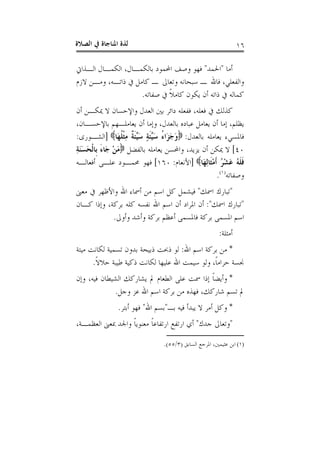 ١٦ لذة المناجاة في الصلاة
أما "الحمد" فهو وصف المحمود بالكمـال، الكمـال الـذاتي
والفعلي، فالله ـ سبحانه وتعالى ـ كامل في ذاتـه، ومـن لازم
كماله في ذاته أن يكون كاملاً في صفاته.
كذلك في فعله، ففعله دائر بين العدل والإحسان لا يمكـن أن
يظلم، إما أن يعامل عباده بالعدل، وإما أن يعاملـهم بالإحسـان،
فالمسيء يعامله بالعدل: ﴿وَجَزَاءُ سَيِّئَةٍ سَيِّئَةٌ مِثْلُهَا﴾ [الشـورى:
٤٠] لا يمكن أن يزيد، والمحسن يعامله بالفضل ﴿مَنْ جَاءَ بِالْحَسَنَةِ
فَلَهُ عَشْرُ أَمْثَالِهَا﴾ [الأنعام: ١٦٠] فهو محمـود علـى أفعالـه
وصفاته(١).
"تبارك اسمك" فيشمل كل اسم من أسماء الله والأظهر في معنى
"تبارك اسمك": أن المراد أن اسم الله نفسه كله بركة، وإذا كـان
اسم المسمى بركة فالمسمى أعظم بركة وأشد وأولى.
أمثلة:
* من بركة اسم الله: لو ذبحت ذبيحة بدون تسمية لكانت ميتة
نجسة حراماً، ولو سميت الله عليها لكانت ذكية طيبة حلالاً.
* وأيضاً إذا سمت على الطعام لم يشاركك الشيطان فيه، وإن
لم تسم شاركك، فهذه من بركة اسم الله عز وجل.
* وكل أمر لا يبدأ فيه بـ"بسم الله" فهو أبتر.
"وتعالى جدك" أي ارتفع ارتفاعاً معنوياً والجد بمعنى العظمـة،
(١) ابن عثيمين، المرجع السابق (٥٥/٣).